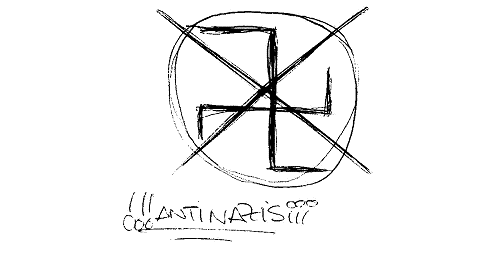 !!!ANTINAZIS¡¡¡